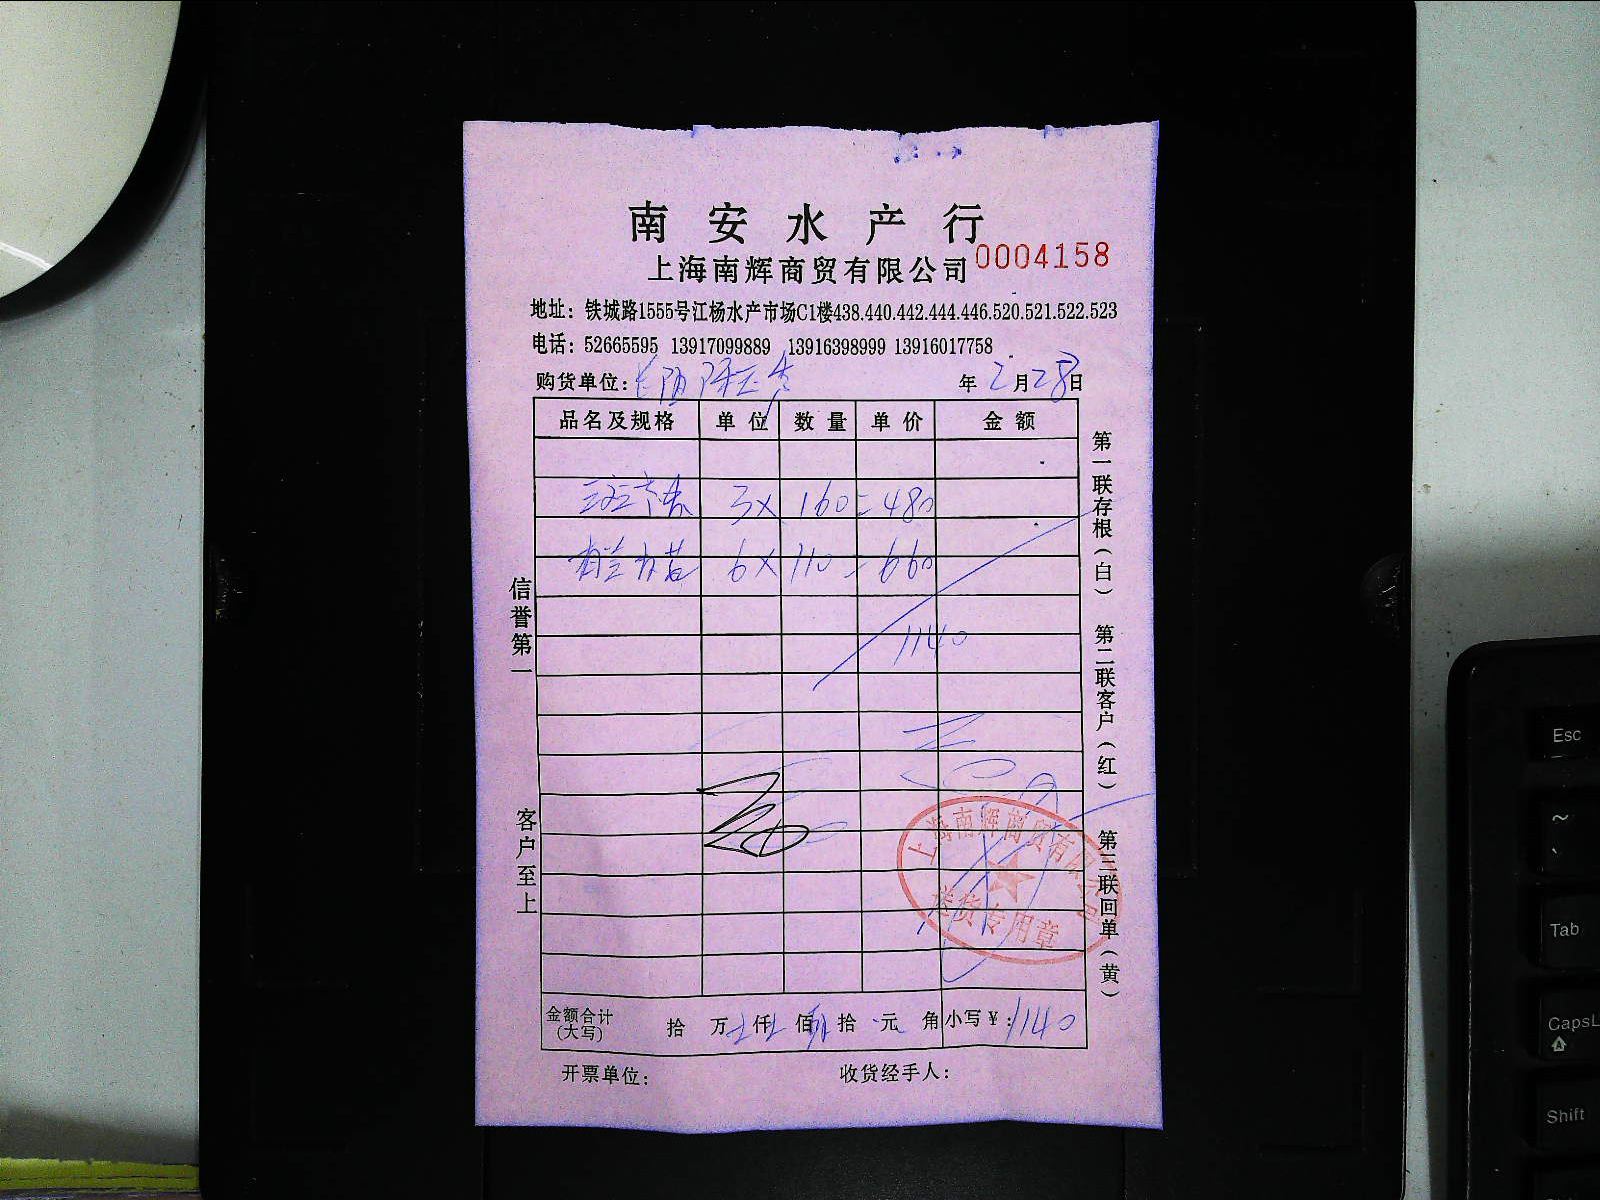 南安水产行
上海南辉商贸有限公司 0004158
地址：铁城路1555号江杨水产市场C1楼438.440.442.444.446.520.521.522.523
电话：52665595 13917099889 13916398999 13916017758
购货单位： 年 2月28日
品名及规格 单位 数量 单价 金额
3× 160=480
6×110=660
1140
信誉第一
客户至上
第一联存根（白） 第二联客户（红） 第三联回单（黄）
上海南辉商贸有限公司
送货专用章
金额合计（大写） 拾 万 仟 佰 拾 元 角 小写￥：1140
开票单位： 收货经手人：
Esc
~
Tab
CapsL
Shift